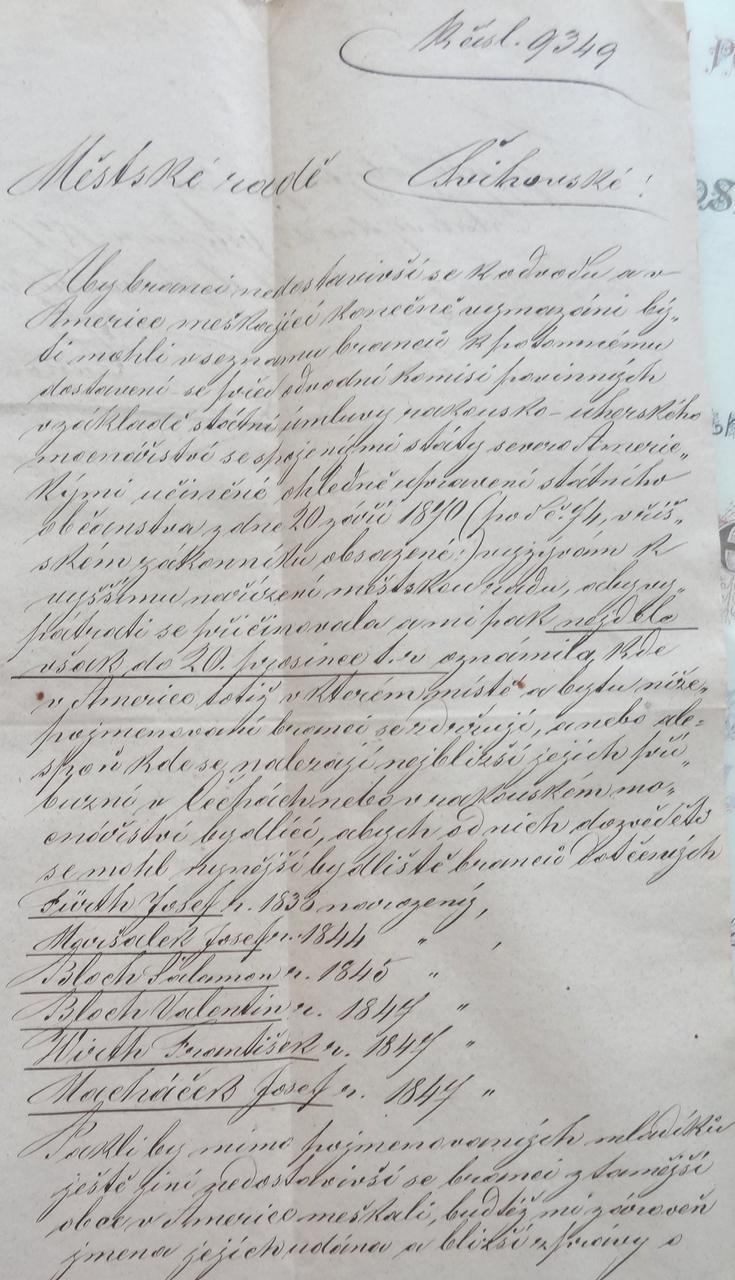 K čísl. 9349
Městské radě Švihovské!
Aby branci nedostavivší se k odvodu a v
Americe meškající konečně vymazáni bý„
ti mohli v seznamu branců k potomnému
dostavení se před odvodní komisí povinných
v základě státní úmluvy rakousko-uherského
mocnářství se spojenými státy severo Americ„
kými učiněné ohledně upravení státního
občanstva z dne 20 září 1870 (pod č: 74, v říš„
ském zákonníku obsažené:) vyzývám k
vyššímu nařízení městskou radu, aby vy„
pátrati se přičinovala a mi pak nejdéle
však do 20. prosince t.r. oznámila, kde
v Americe totiž v kterém místě a bytu níže„
pojmenovaní branci se zdržují, anebo ale„
spoň kde se nalezají nejbližší jejich pří„
buzní v Čéchách nebo v rakouském mo„
cnářství bydlící, abych od nich dozvěděti
se mohl nynější bydliště branců dotčených
Fürth Josef r. 1838 narozený,
Maršalek Josef r. 1844 „ ,
Bloch Salamon r. 1845 „
Bloch Valentin r. 1847 „
Wirth František r. 1847 „
Macháček Josef r. 1847 „
Pakli by mimo pojmenovaných mladíků
ještě jiní nedostavivší se branci z tamější
obce v Americe meškali, budtéž mi zároveň
jmena jejich udána a bližší zprávy o